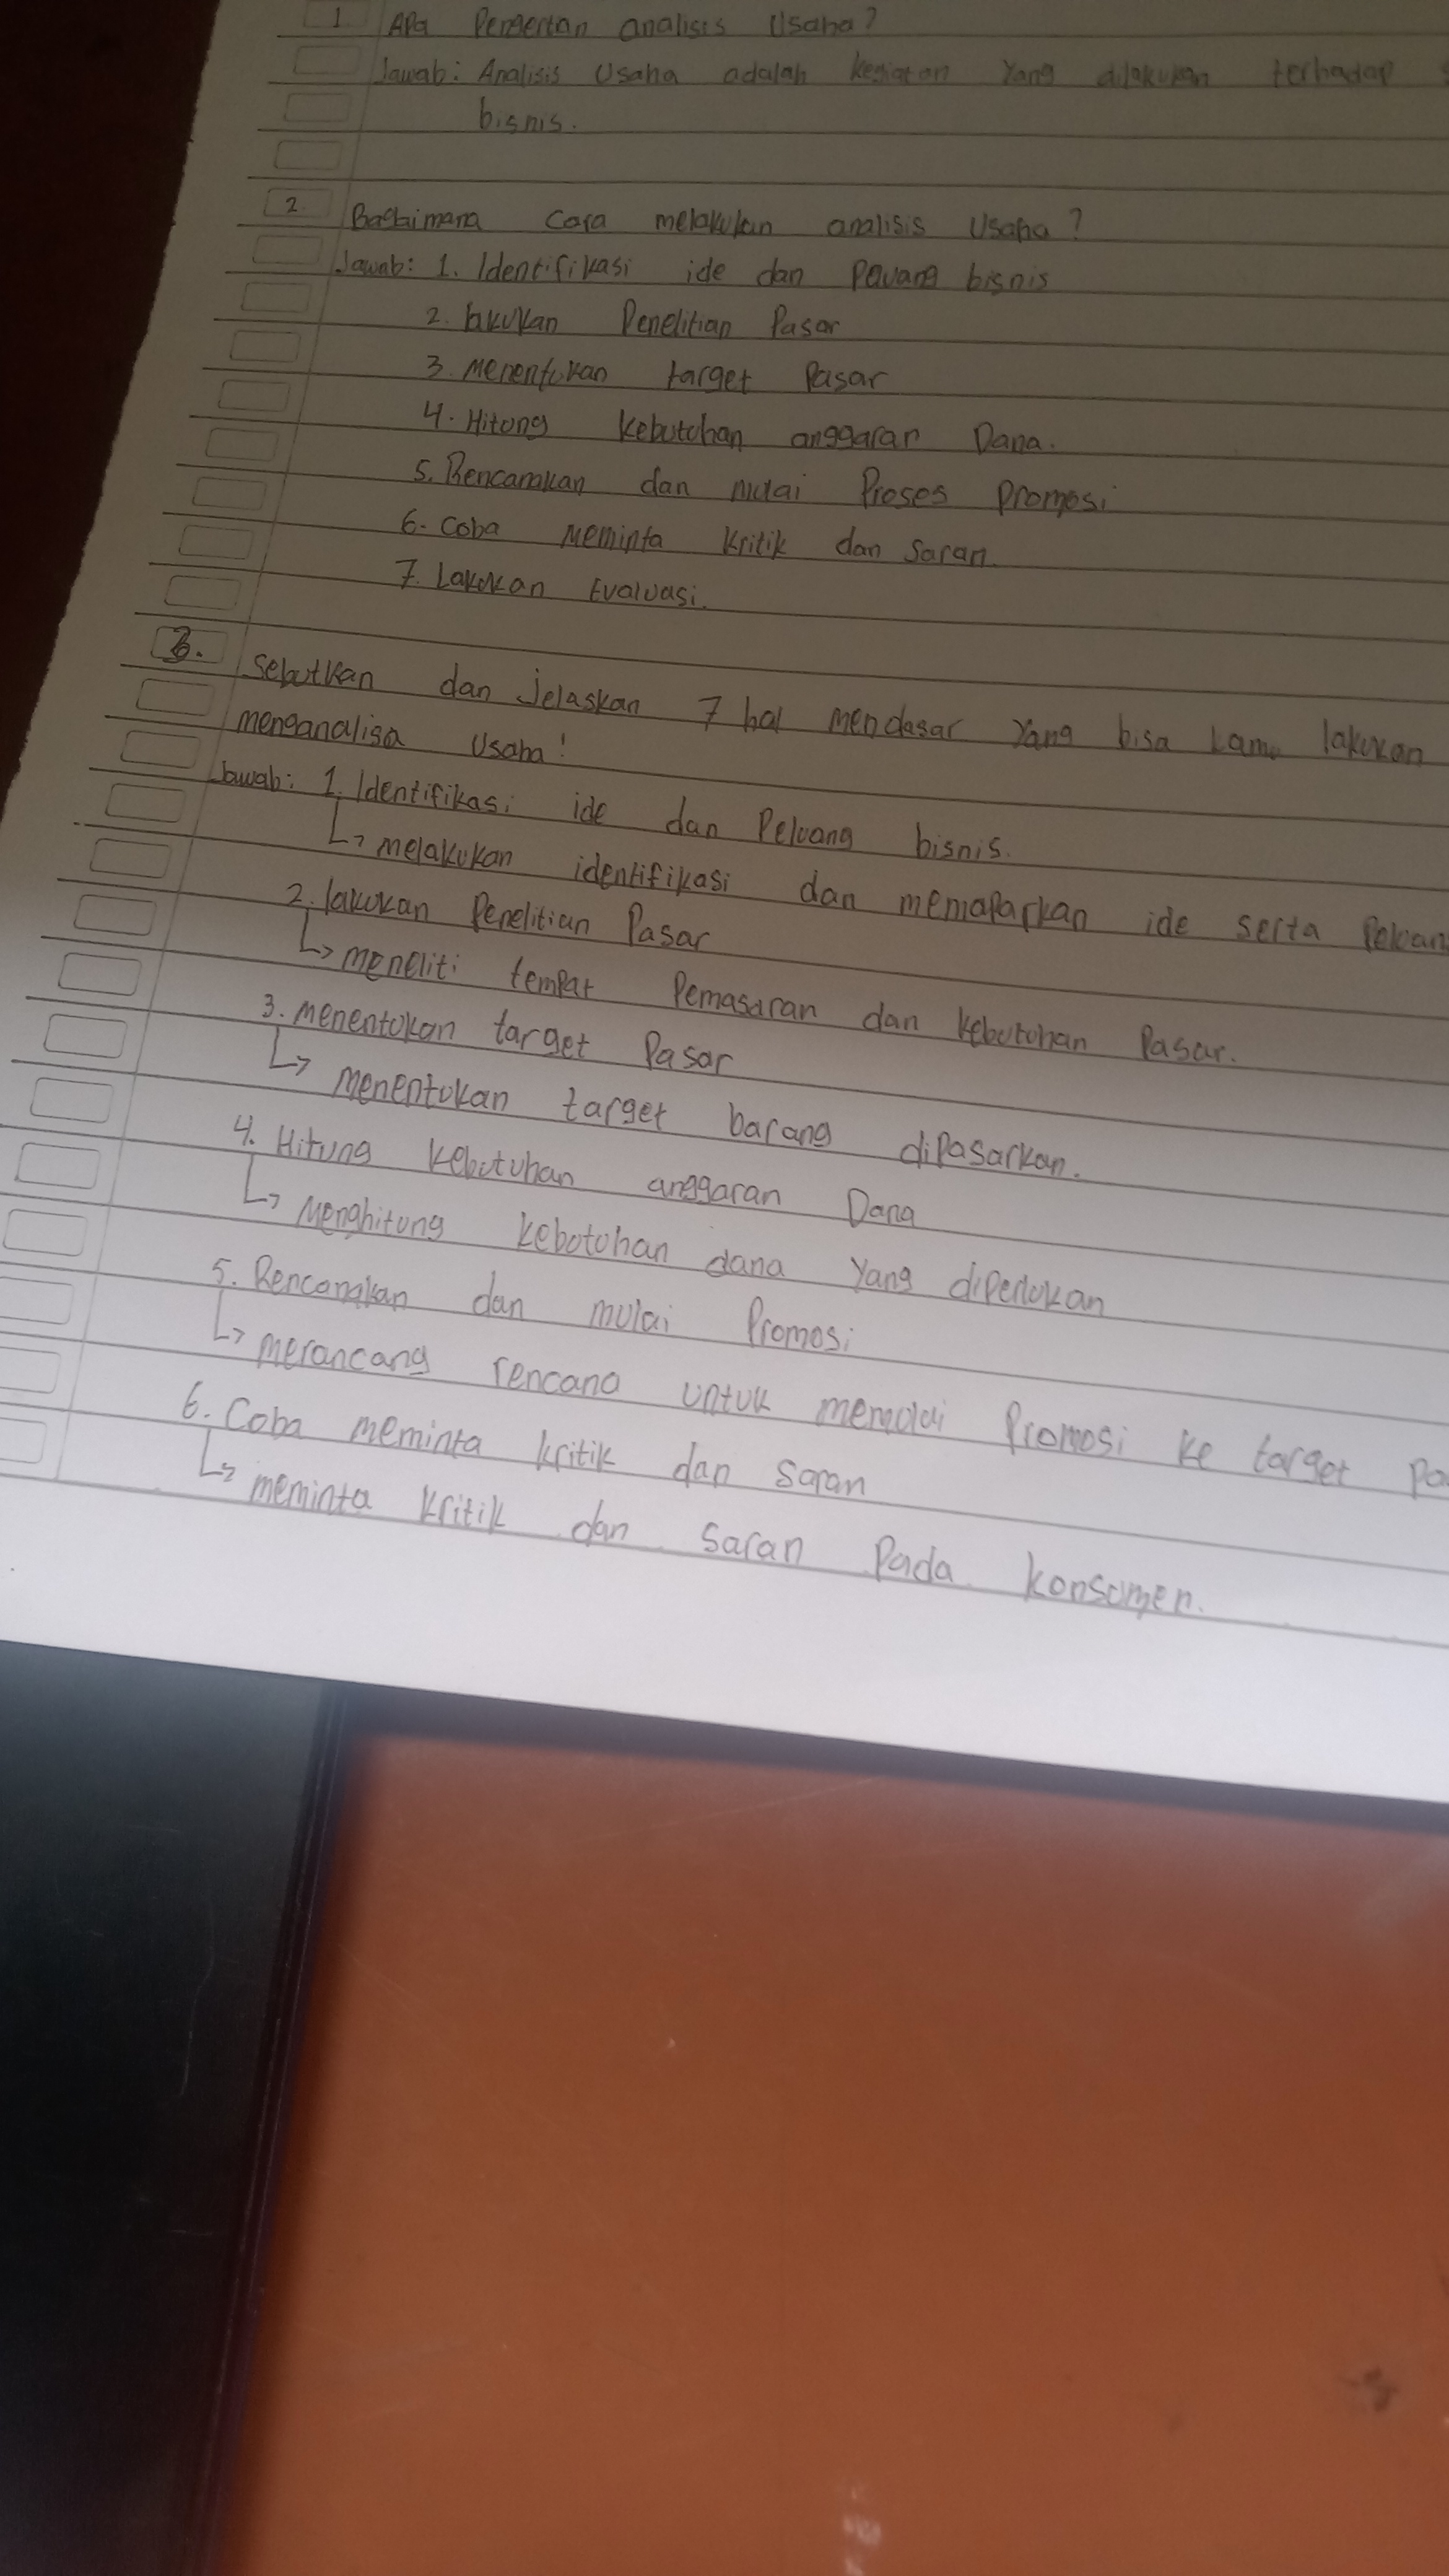 1 Apa Pengertan analisis Usaha?
Jawab: Analisis Usaha adalah kegiatan Yang dilakukan terhadap
bisnis.
2. Bagaimana Cara melakukan analisis Usaha?
Jawab: 1. Identifikasi ide dan Peluang bisnis
2. lakukan Penelitian Pasar
3. Menentukan target Pasar
4. Hitung kebutuhan anggaran Dana.
5. Rencanakan dan mulai Proses Promosi
6. Coba Meminta kritik dan Saran.
7. Lakukan Evaluasi.
3. Sebutkan dan Jelaskan 7 hal mendasar Yang bisa kamu lakukan
menganalisa Usaha!
Jawab: 1. Identifikasi ide dan Peluang bisnis.
↳ melakukan identifikasi dan memaparkan ide serta
2. lakukan Penelitian Pasar
↳ meneliti tempat Pemasaran dan kebutuhan Pasar.
3. Menentukan target Pasar
↳ Menentukan target barang dipasarkan.
4. Hitung kebutuhan anggaran Dana
↳ Menghitung kebutuhan dana Yang diperlukan
5. Rencanakan dan mulai Promosi
↳ merancang rencana untuk memulai Promosi ke target
6. Coba meminta kritik dan Saran
↳ meminta kritik dan Saran Pada konsumen.